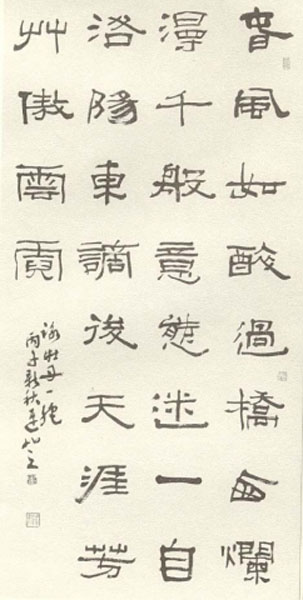 春風如醉過橋西爛
漫千般意態迷一自
洛陽東謫後天涯芳
艸傲雲霓
詠牡丹一絕
丙子新秋